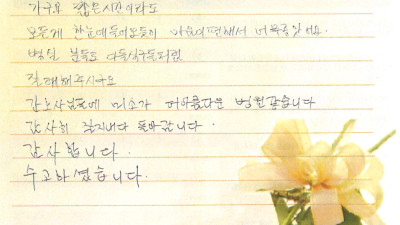 가구요 짧은시간이라도
모든게 한눈에들어오듯이 마음이편해서 너무좋았어요.
병실 분들도 다들식구들처럼
잘대해주시구요
간호사님들에 미소가 더아름다운 병원같습니다
감사히 잘지내다 돌아갑니다.
감사합니다.
수고하셨습니다.